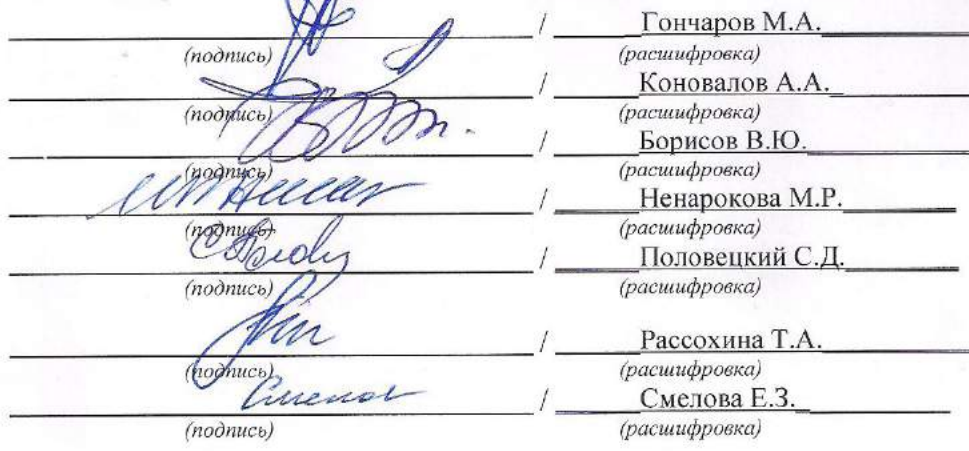 / Гончаров М.А.
(подпись) (расшифровка)
/ Коновалов А.А.
(подпись) (расшифровка)
/ Борисов В.Ю.
(подпись) (расшифровка)
/ Ненарокова М.Р.
(подпись) (расшифровка)
/ Половецкий С.Д.
(подпись) (расшифровка)
/ Рассохина Т.А.
(подпись) (расшифровка)
/ Смелова Е.З.
(подпись) (расшифровка)